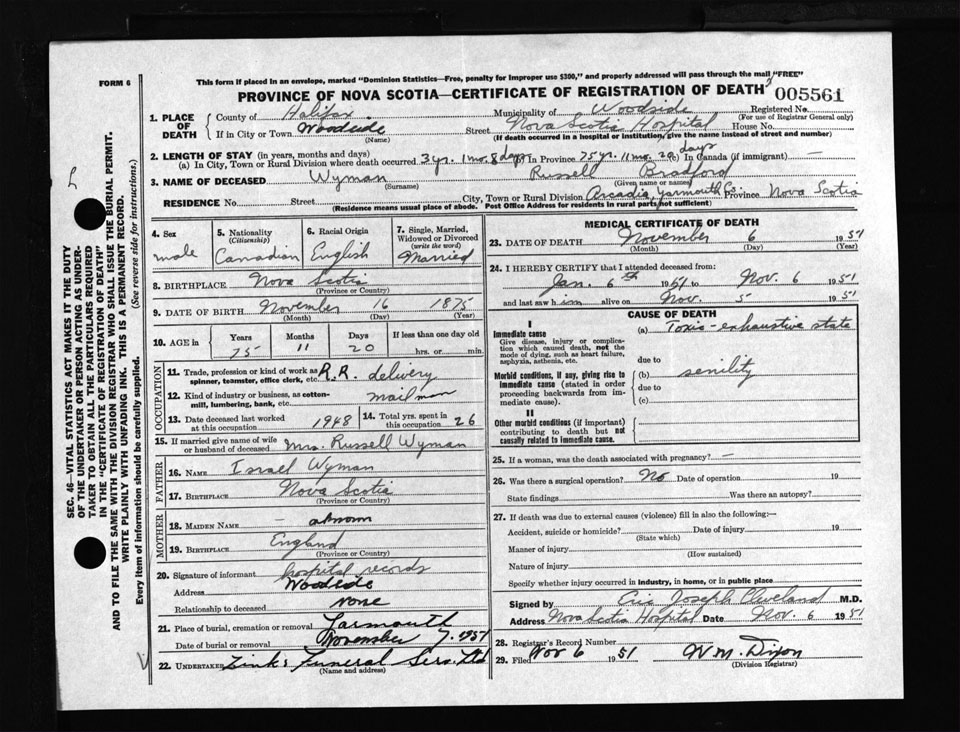 FORM 6
This form if placed in an envelope, marked "Dominion Statistics—Free, penalty for improper use $300," and properly addressed will pass through the mail "FREE"
PROVINCE OF NOVA SCOTIA—CERTIFICATE OF REGISTRATION OF DEATH 005561
1. PLACE OF DEATH County of Halifax Municipality of Woodside Registered No. (For use of Registrar General only)
If in City or Town Woodside (Name) Street Nova Scotia Hospital House No.
(If death occurred in a hospital or institution, give the name instead of street and number)
2. LENGTH OF STAY (in years, months and days)
(a) In City, Town or Rural Division where death occurred 3 yr. 1 mo. 8 days In Province 75 yr. 11 mo. 20 days (c) In Canada (if immigrant) —
3. NAME OF DECEASED Wyman (Surname) Russell Bradford (Given name or names)
RESIDENCE No. Street City, Town or Rural Division Arcadia, Yarmouth Co. Province Nova Scotia
(Residence means usual place of abode. Post Office Address for residents in rural parts not sufficient)
4. Sex male
5. Nationality (Citizenship) Canadian
6. Racial Origin English
7. Single, Married, Widowed or Divorced (write the word) Married
8. BIRTHPLACE Nova Scotia (Province or Country)
9. DATE OF BIRTH November 16 1875 (Month) (Day) (Year)
10. AGE in Years Months Days If less than one day old
75 11 20 hrs. or min.
OCCUPATION
11. Trade, profession or kind of work as spinner, teamster, office clerk, etc. R.R. delivery
12. Kind of industry or business, as cotton-mill, lumbering, bank, etc. mailman
13. Date deceased last worked at this occupation 1948
14. Total yrs. spent in this occupation 26
15. If married give name of wife or husband of deceased Mrs. Russell Wyman
FATHER
16. NAME Israel Wyman
17. BIRTHPLACE Nova Scotia (Province or Country)
MOTHER
18. MAIDEN NAME —
19. BIRTHPLACE England (Province or Country)
20. Signature of informant hospital records
Address Woodside
Relationship to deceased none
21. Place of burial, cremation or removal Yarmouth
Date of burial or removal November 7, 1951
22. UNDERTAKER Zink's Funeral Serv. Ltd (Name and address)
MEDICAL CERTIFICATE OF DEATH
23. DATE OF DEATH November 6 1951
(Month) (Day) (Year)
24. I HEREBY CERTIFY that I attended deceased from:
Jan. 6th 1951 to Nov. 6 1951
and last saw him alive on Nov. 5 1951
CAUSE OF DEATH
I
Immediate cause (a) Toxic-exhaustive state
Give disease, injury or complication which caused death, not the mode of dying, such as heart failure, asphyxia, asthenia, etc.
due to
Morbid conditions, if any, giving rise to immediate cause (stated in order proceeding backwards from immediate cause). (b) senility
due to
(c)
II
Other morbid conditions (if important) contributing to death but not causally related to immediate cause.
25. If a woman, was the death associated with pregnancy? —
26. Was there a surgical operation? No Date of operation 19
State findings Was there an autopsy?
27. If death was due to external causes (violence) fill in also the following:—
Accident, suicide or homicide? Date of injury 19
(State which)
Manner of injury (How sustained)
Nature of injury
Specify whether injury occurred in industry, in home, or in public place
Signed by Eric Joseph Cleveland M.D.
Address Nova Scotia Hospital Date Nov. 6 1951
28. Registrar's Record Number
29. Filed Nov 6 1951 W M. Dixon
(Division Registrar)
SEC. 46—VITAL STATISTICS ACT MAKES IT THE DUTY
OF THE UNDERTAKER OR PERSON ACTING AS UNDER-
TAKER TO OBTAIN ALL THE PARTICULARS REQUIRED
IN THE "CERTIFICATE OF REGISTRATION OF DEATH"
AND TO FILE THE SAME WITH THE DIVISION REGISTRAR WHO SHALL ISSUE THE BURIAL PERMIT.
WRITE PLAINLY WITH UNFADING INK. THIS IS A PERMANENT RECORD.
Every item of information should be carefully supplied. (See reverse side for instructions.)